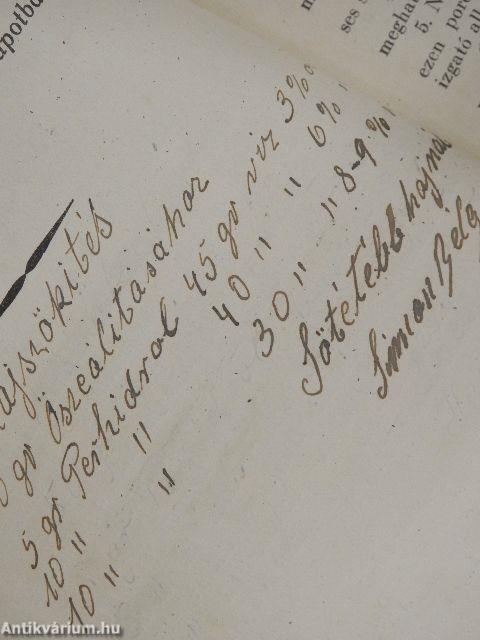 apotba
ses s
megha
5. N
ezen pore
izgató all
ajszőkités
0 gr Összeálitásához
5 gr Perhidrol 45 gr viz 3%
10 " " 40 " " 6%
10 " " 30 " " 8-9%
Sötétebb hajnál
Simon Béla
Antikvárium.hu